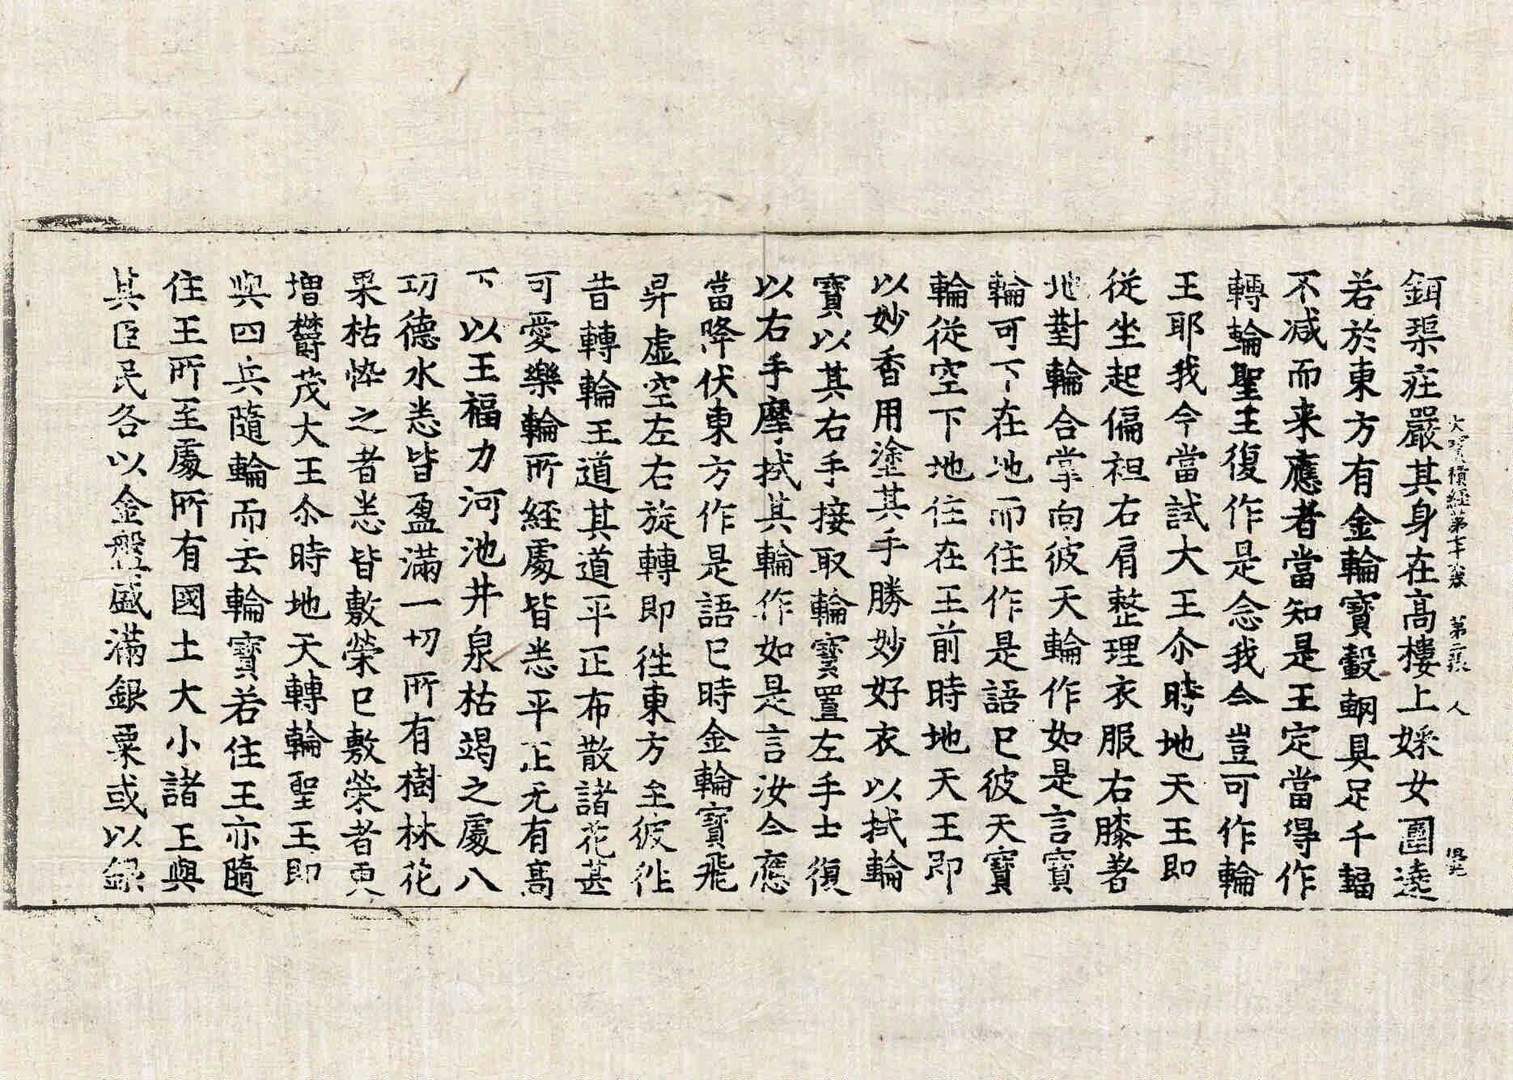 鉺璖莊嚴其身在高樓上婇女圍遶
大寶積經第七十六卷 第二張 人
若於東方有金輪寶轂輞具足千輻
不减而来應者當知是王定當得作
轉輪聖王復作是念我今豈可作輪
王耶我今當試大王尒時地天王即
従坐起偏袒右肩整理衣服右膝著
地對輪合掌向彼天輪作如是言寶
輪可下在地而住作是語已彼天寶
輪従空下地住在王前時地天王即
以妙香用塗其手勝妙好衣以拭輪
寶以其右手接取輪寶置左手士復
以右手摩拭其輪作如是言汝今應
當降伏東方作是語已時金輪寶飛
昇虚空左右旋轉即徃東方至彼徃
昔轉輪王道其道平正布散諸花甚
可愛樂輪所經處皆悉平正无有高
下以王福力河池井泉枯竭之處八
功德水悉皆盈滿一切所有樹林花
果枯悴之者悉皆敷榮已敷榮者更
増欝茂大王尒時地天轉輪聖王即
與四兵隨輪而去輪寶若住王亦隨
住王所至處所有國土大小諸王與
其臣民各以金盤盛滿銀粟或以銀